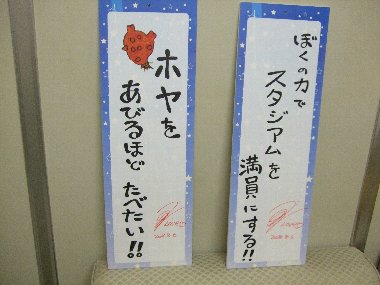 ぼくの力で
スタジアムを
満員にする!!
ホヤを
あびるほど たべたい!!